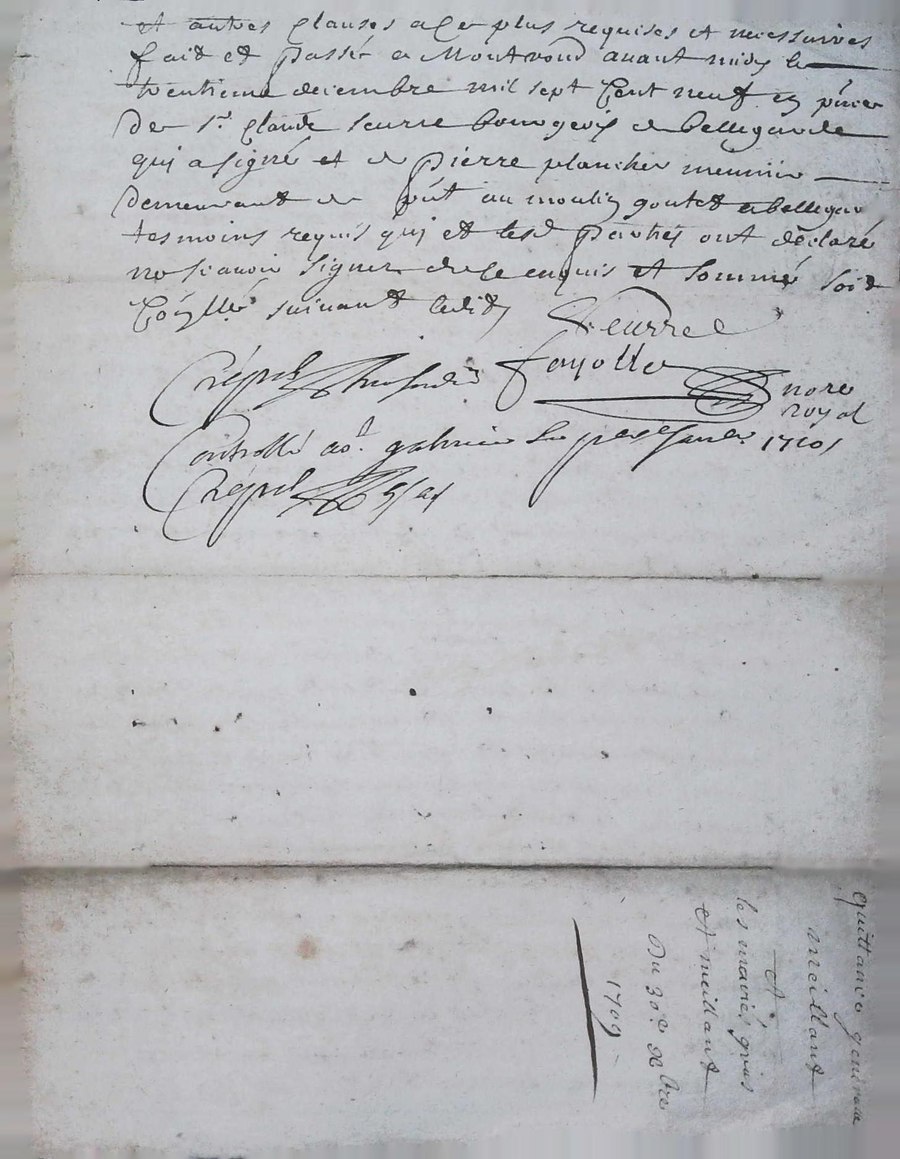 et autres clauses a ce plus requises et necessaires
fait et passé a Montrond avant midy le
trentieme decembre mil sept cent neuf en pñce
De sr. Claude seurre bourgeois de bellegarde
qui a signé et de pierre plancher meunier
demeurant de pñt au moulin goutet a bellegar
tesmoins requis qui et lesd parties ont declaré
ne scavoir signer de ce enquis et sommé soit
suivant ledit
Seurre
Crépet
fayolle
nore
royal
Controllé
1710
Crépet
quittance generale
meillant
et
les mariés
et meillant
Du 30e xbre
1709